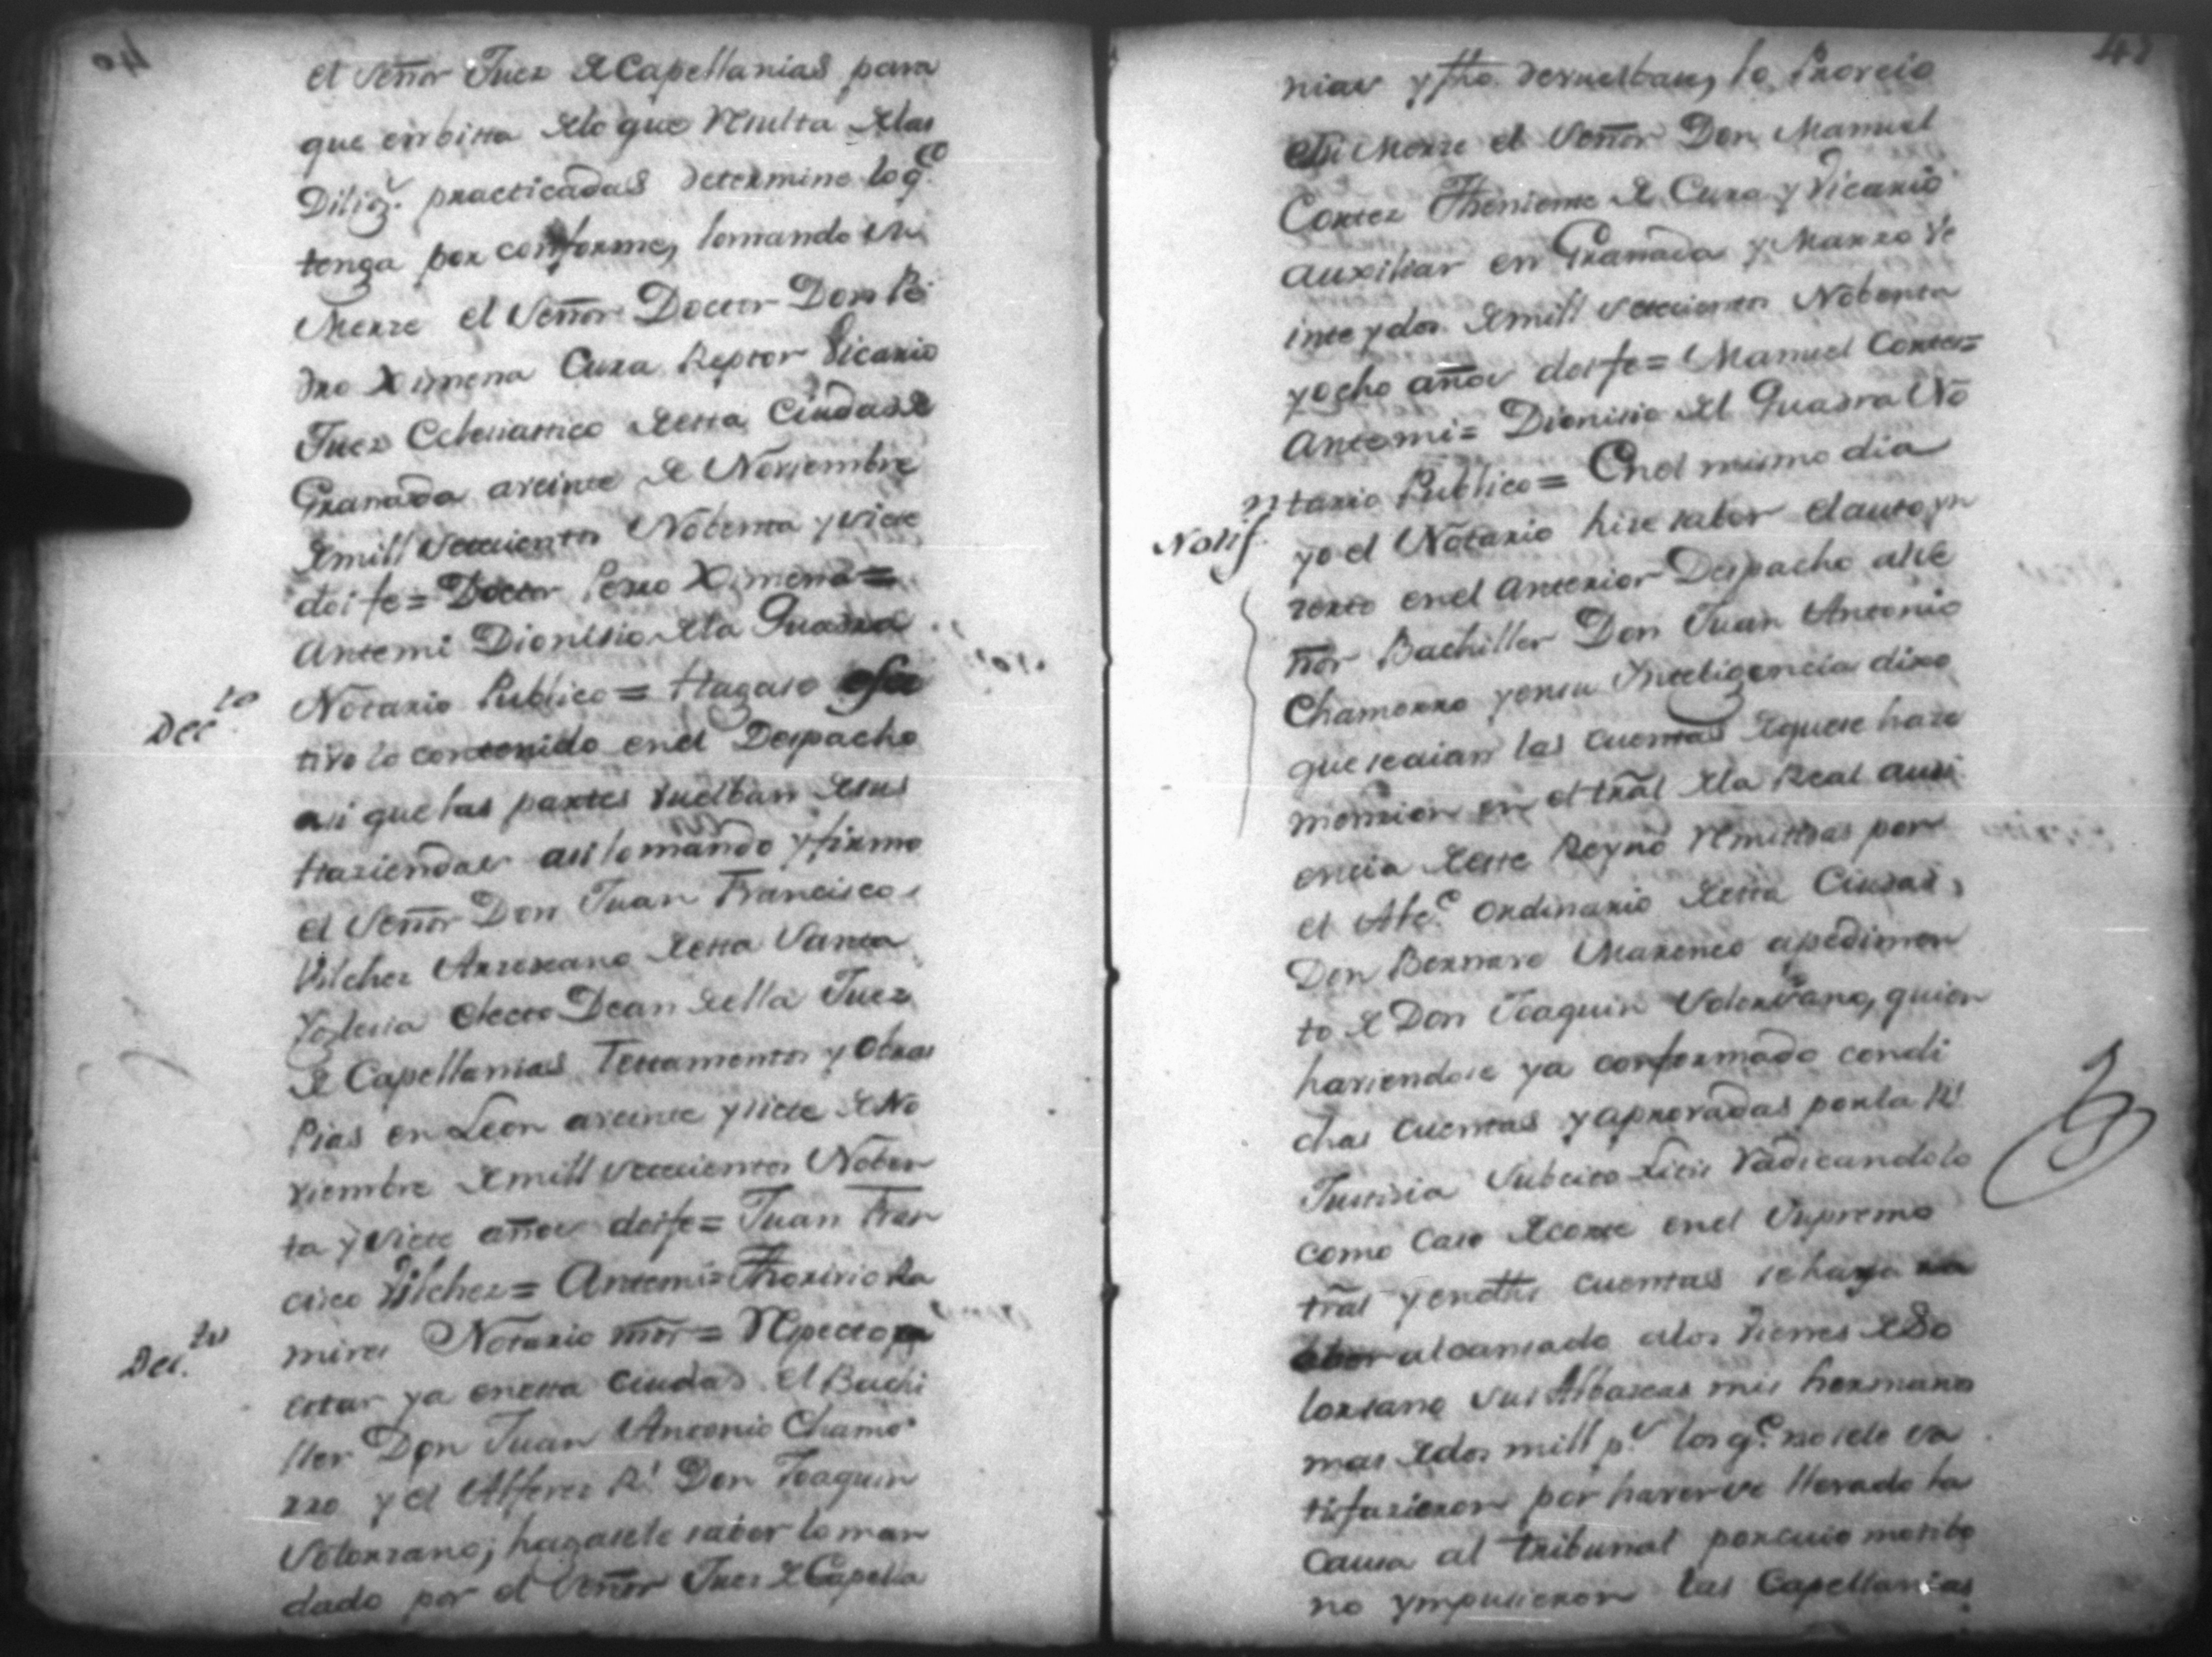 el Señor Juez de Capellanias para
que en bista de lo que resulta de las
Diligs. practicadas determine lo qe.
tenga por conforme, lo mando su
Merze el Señor Doctor Don Pe
dro Ximena Cura Reptor Vicario
Juez Eclesiastico de esta Ciudad de
Granada a veinte de Noviembre
de mill setecientos Nobenta y siete
doi fe = Doctor Pedro Ximena =
Antemi Dionisio de la Quadra
Decto.
Notario Publico = Hagase efec
tivo lo contenido en el Despacho
asi que las partes vuelban de sus
Haziendas asi lo mando y firmo
el Señor Don Juan Francisco
Vilches Arzediano de esta Santa
Yglesia electo Dean de ella Juez
de Capellanias Testamentos y Obras
Pias en Leon a veinte y siete de No
viembre de mill setecientos Noben
ta y siete años doi fe = Juan Fran
cisco Vilchez = Antemi =
mires Notario mor = Respecto
Decto.
estar ya en esta Ciudad el Bachi
ller Don Juan Antonio Chamo
rro y el Alferes Rl. Don Joaquin
Solorzano; hagasele saber lo man
dado por el Señor Juez de Capella
nias y fho. debuelbase, lo Proveio
su Merze el Señor Don Manuel
Cortez Theniente de Cura y Vicario
Auxiliar en Granada y Marzo ve
inte y dos de mill setecientos Nobenta
y ocho años doi fe = Manuel Cortez =
Antemi = Dionisio de la Quadra No
tario Publico = En el mismo dia
Notif.
yo el Notario hise saber el auto yn
serto en el Anterior Despacho al Se
ñor Bachiller Don Juan Antonio
Chamorro y en su Ynteligencia dixo
que sedian las cuentas de que se haze
mension en el tral de la Real Audi
encia de este Reyno remitidas por
el Alce. Ordinario de esta Ciudad,
Don Bernaro Marenco a pedimen
to de Don Joaquin Solorzano, quien
haviendose ya conformado con di
chas cuentas y aprovadas por la Rl.
Justisia Subcito Litis radicandolo
como Caso de Corte en el Supremo
tral y en dhas cuentas se haya
alcansado a los vienes de So
lorsano sus Albaseas mis hermanos
mas de dos mill ps. los qe. no se le sa
tisfazieron por haverse llevado la
Causa al tribunal por cuio motibo
no ympusieron las Capellanias